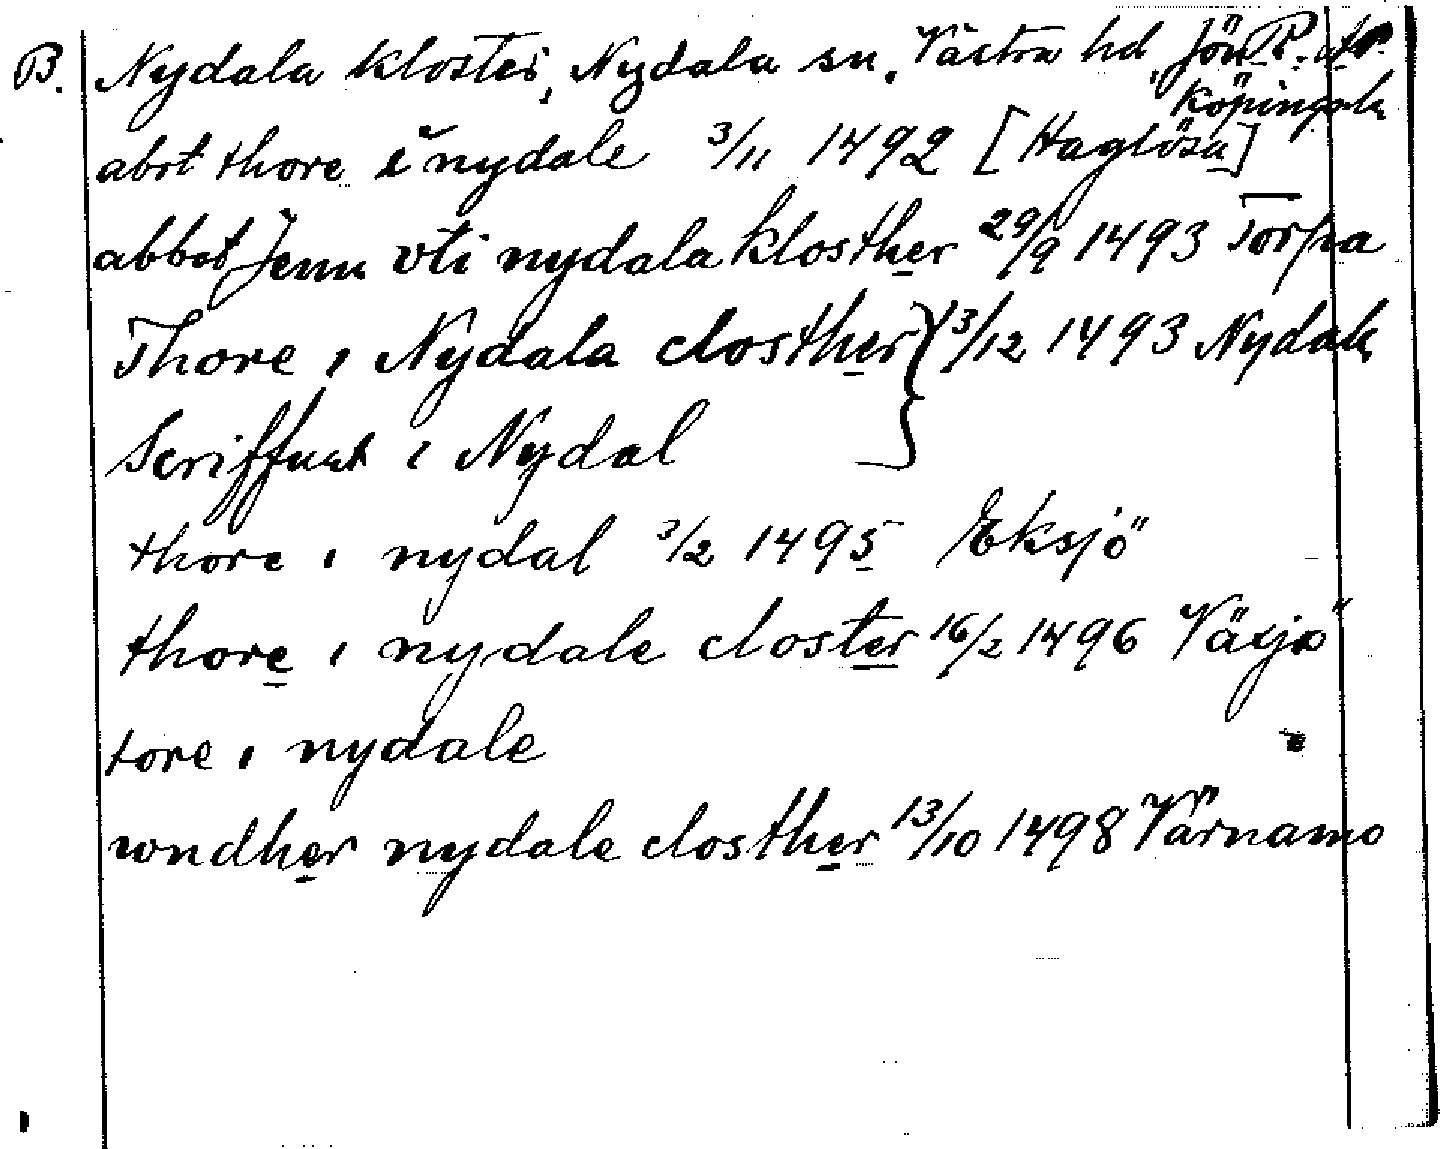 B. Nydala kloster, Nydala sn, Västra hd, Jön P. Ar.
köpings l.
abot thore i nydale 3/11 1492 [Haglösa]
abbot Jenu vti nydala klosther 29/9 1493 Torpa
Thore i Nydala closther } 3/12 1493 Nydala
Scriffuat i Nydal
thore i nydal 3/2 1495 Eksjö
thore i nydale closter 16/2 1496 Växjö
tore i nydale "
wndher nydale closther 13/10 1498 Värnamo